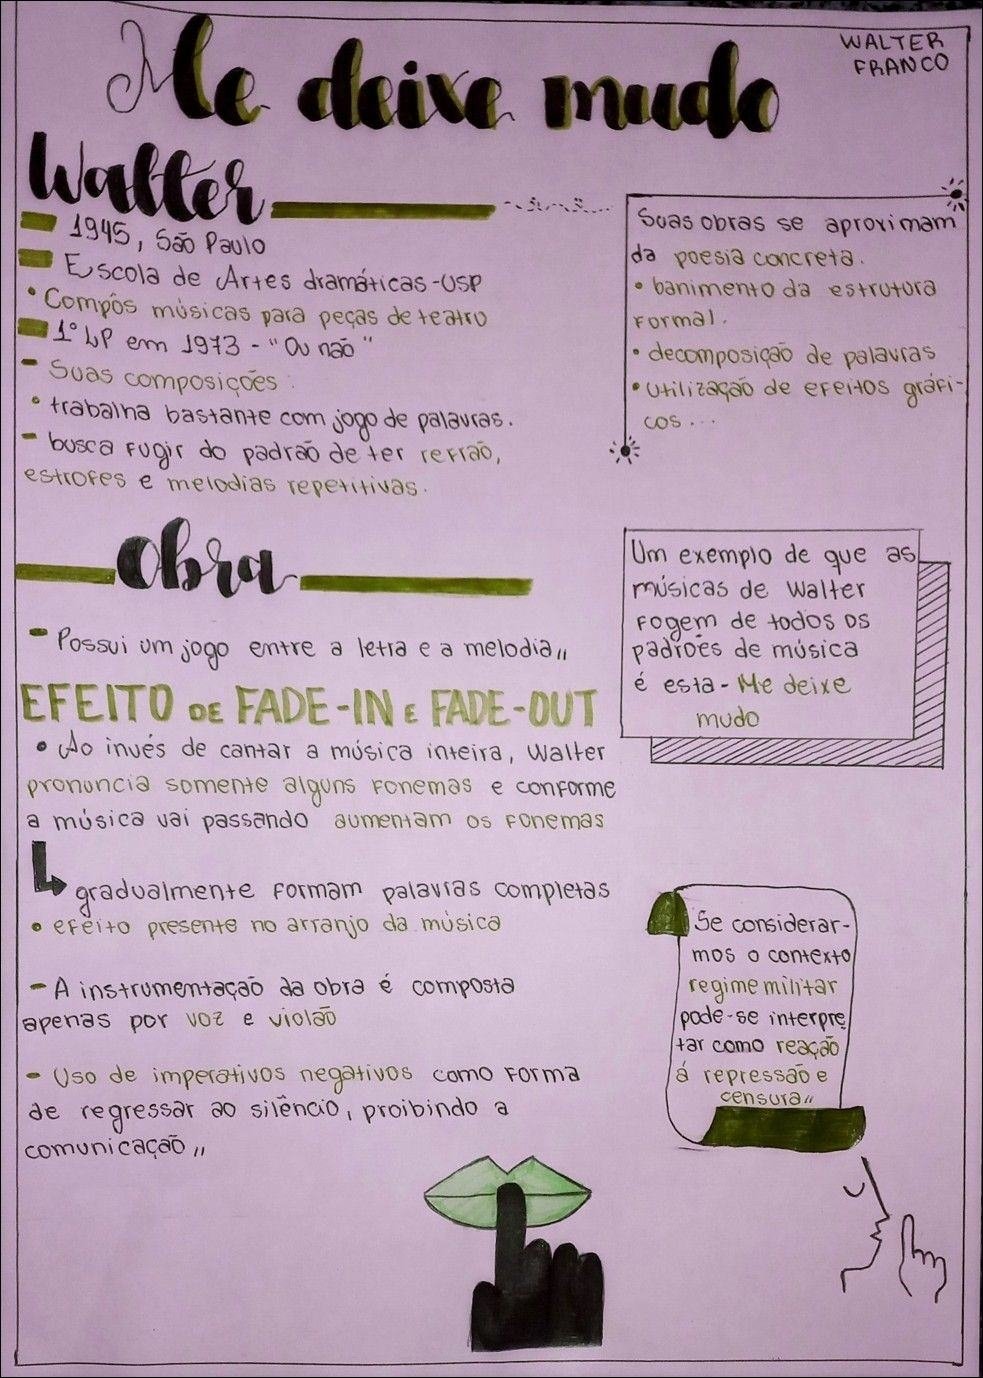 Me deixe mudo
WALTER
FRANCO
Walter
1945, São Paulo
Escola de Artes dramáticas-USP
• Compôs músicas para peças de teatro
1º LP em 1973 - "Ou não"
- Suas composições:
• trabalha bastante com jogo de palavras.
- busca fugir do padrão de ter refrão,
estrofes e melodias repetitivas.
Suas obras se aproximam
da poesia concreta.
• banimento da estrutura
formal.
• decomposição de palavras
• utilização de efeitos gráfi-
cos...
Obra
- Possui um jogo entre a letra e a melodia,,
EFEITO DE FADE-IN E FADE-OUT
• Ao invés de cantar a música inteira, Walter
pronuncia somente alguns fonemas e conforme
a música vai passando aumentam os fonemas
gradualmente formam palavras completas
• efeito presente no arranjo da música
- A instrumentação da obra é composta
apenas por voz e violão
- Uso de imperativos negativos como forma
de regressar ao silêncio, proibindo a
comunicação,,
Um exemplo de que as
músicas de Walter
fogem de todos os
padrões de música
é esta - Me deixe
mudo
Se considerar-
mos o contexto
regime militar
pode-se interpre
tar como reação
á repressão e
censura,,